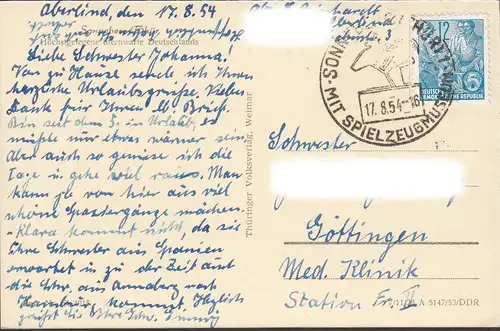 Oberlind, den 17.8.54
Höchstgelegene Sternwarte Deutschlands
Liebe Schwester Johanna!
Von zu Hause sende ich Ihnen
herzliche Urlaubsgrüße. Vielen
Dank für Ihren Brief.
Bin seit dem 5. in Urlaub, es
müßte nur etwas wärmer sein
Aber auch so genieße ich die
Tage u. gehe viel raus. Man
kann ja von hier aus viel
schöne Spaziergänge machen.
- Klara kommt nicht, da sie
Ihre Schwester aus Spanien
erwartet in zu der Zeit auch
die Schw. aus Annaberg nach
Hamburg kommt. Herzlich
grüßt Sie Ihre Schw.
Thüringer Volksverlag, Weimar
Oberlind
SONNEBERG
MIT SPIELZEUGMUS
17.8.54-16
12
DEUTSCHE
DEMOKRATISCHE REPUBLIK
Schwester
Göttingen
Med. Klinik
Station Fr. II
A 5147/53/DDR